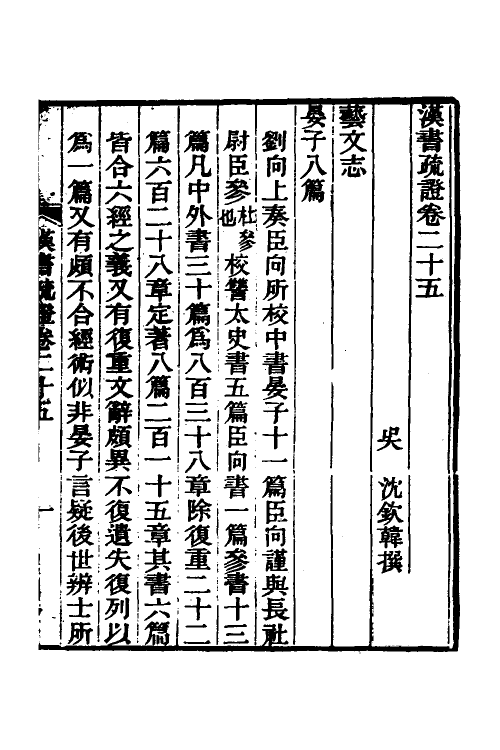 漢書疏證卷二十五
吳 沈欽韓撰
藝文志
晏子八篇
劉向上奏臣向所校中書晏子十一篇臣向謹與長社
尉臣參杜參也校讐太史書五篇臣向書一篇參書十三
篇凡中外書三十篇爲八百三十八章除復重二十二
篇六百二十八章定著八篇二百一十五章其書六篇
皆合六經之義又有復重文辭頗異不復遺失復列以
爲一篇又有頗不合經術似非晏子言疑後世辨士所
漢書疏證卷二十五 一